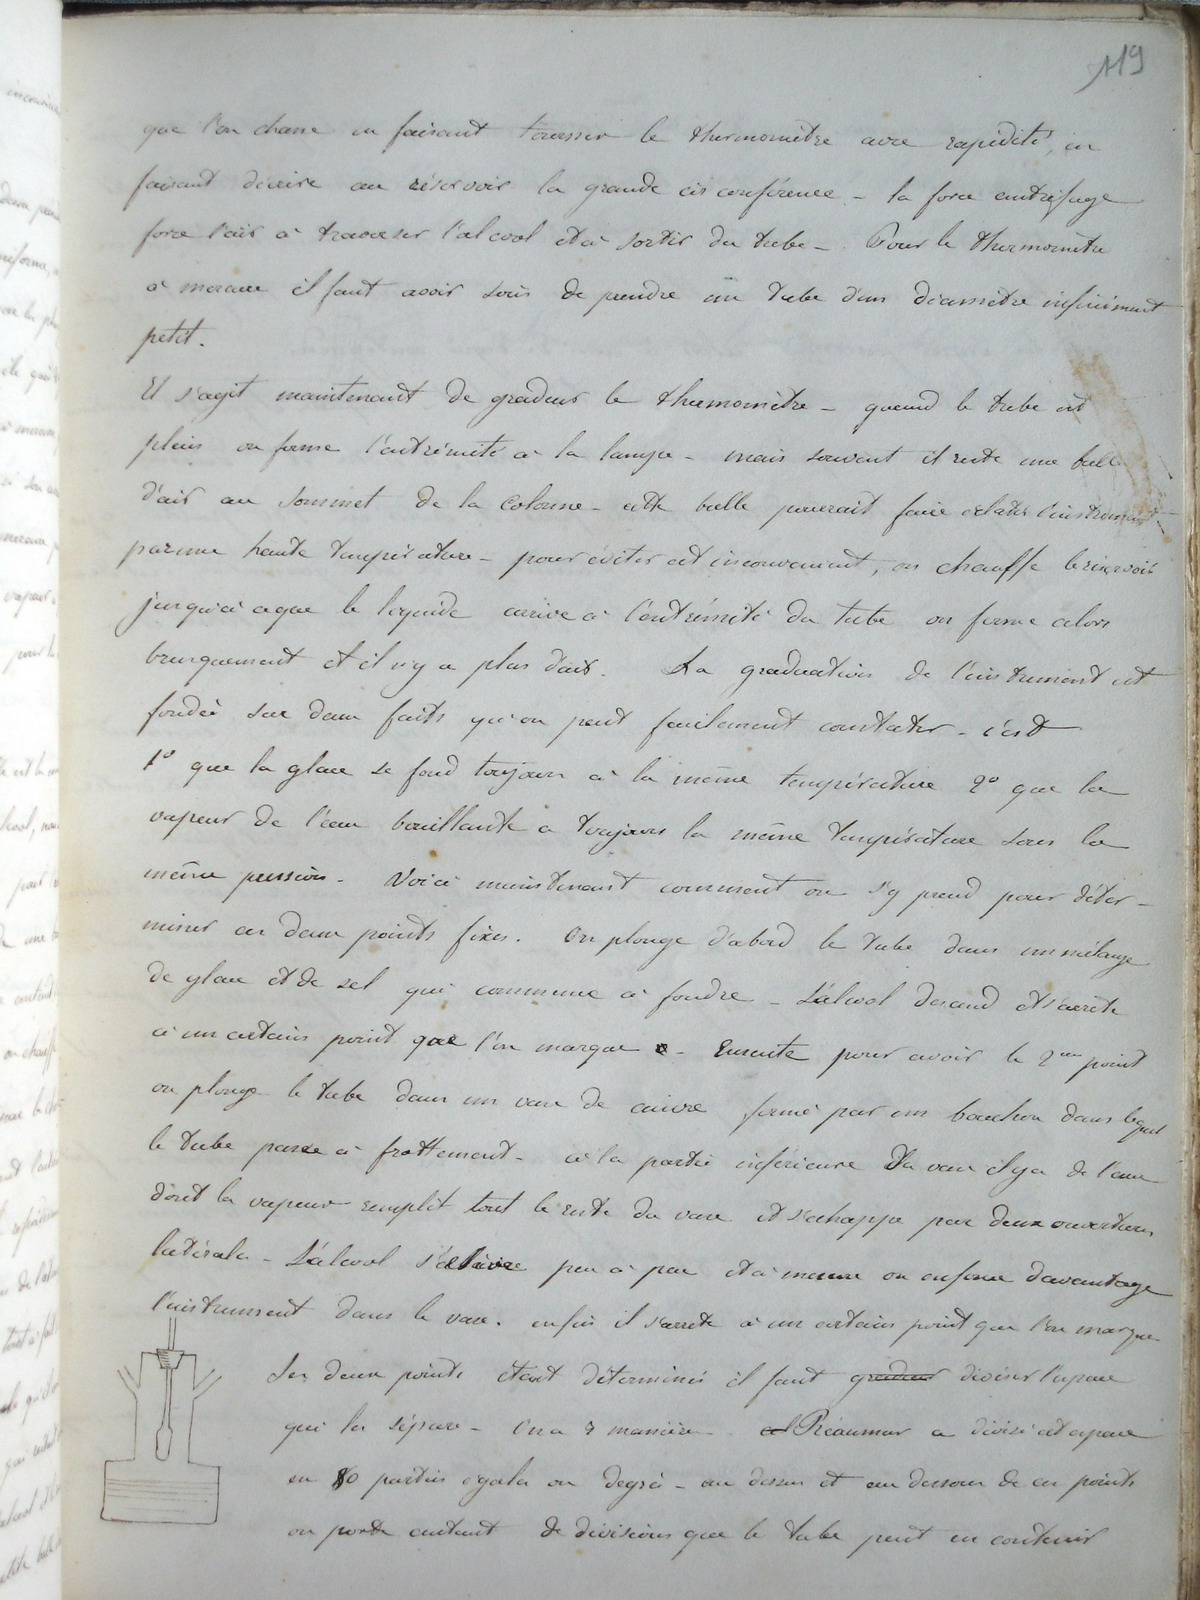 119
que l'on chasse en faisant tourner le thermomètre avec rapidité, en
faisant décrire au réservoir la grande circonférence - la force centrifuge
force l'air à traverser l'alcool et à sortir du tube - Pour le thermomètre
à mercure il faut avoir soin de prendre un tube d'un diamètre infiniment
petit.
Il s'agit maintenant de graduer le thermomètre - quand le tube est
plein on ferme l'extrémité à la lampe - mais souvent il reste une bulle
d'air au sommet de la colonne - cette bulle pourrait faire éclater l'instrument
par une haute température - pour éviter cet inconvénient, on chauffe le réservoir
jusqu'à ce que le liquide arrive à l'extrémité du tube on ferme alors
brusquement et il n'y a plus d'air. La graduation de l'instrument est
fondée sur deux faits qu'on peut facilement constater - c'est
1º que la glace se fond toujours à la même température 2º que la
vapeur de l'eau bouillante a toujours la même température sous la
même pression - Voici maintenant comment on s'y prend pour déter-
miner ces deux points fixes. On plonge d'abord le tube dans un mélange
de glace et de sel qui commence à fondre - L'alcool descend et s'arrête
à un certain point que l'on marque o - Ensuite pour avoir le 2me point
on plonge le tube dans un vase de cuivre fermé par un bouchon dans lequel
le tube passe à frottement - à la partie inférieure du vase il y a de l'eau
dont la vapeur remplit tout le reste du vase et s'échappe par deux ouvertures
latérales - L'alcool s'élève peu à peu et à mesure on enfonce davantage
l'instrument dans le vase. enfin il s'arrête à un certain point que l'on marque
Les deux points étant déterminés il faut graduer diviser l'espace
qui les sépare - On a 3 manières - Réaumur a divisé cet espace
en 80 parties égales ou degrés - au dessus et au dessous de ces points
on porte autant de divisions que le tube peut en contenir